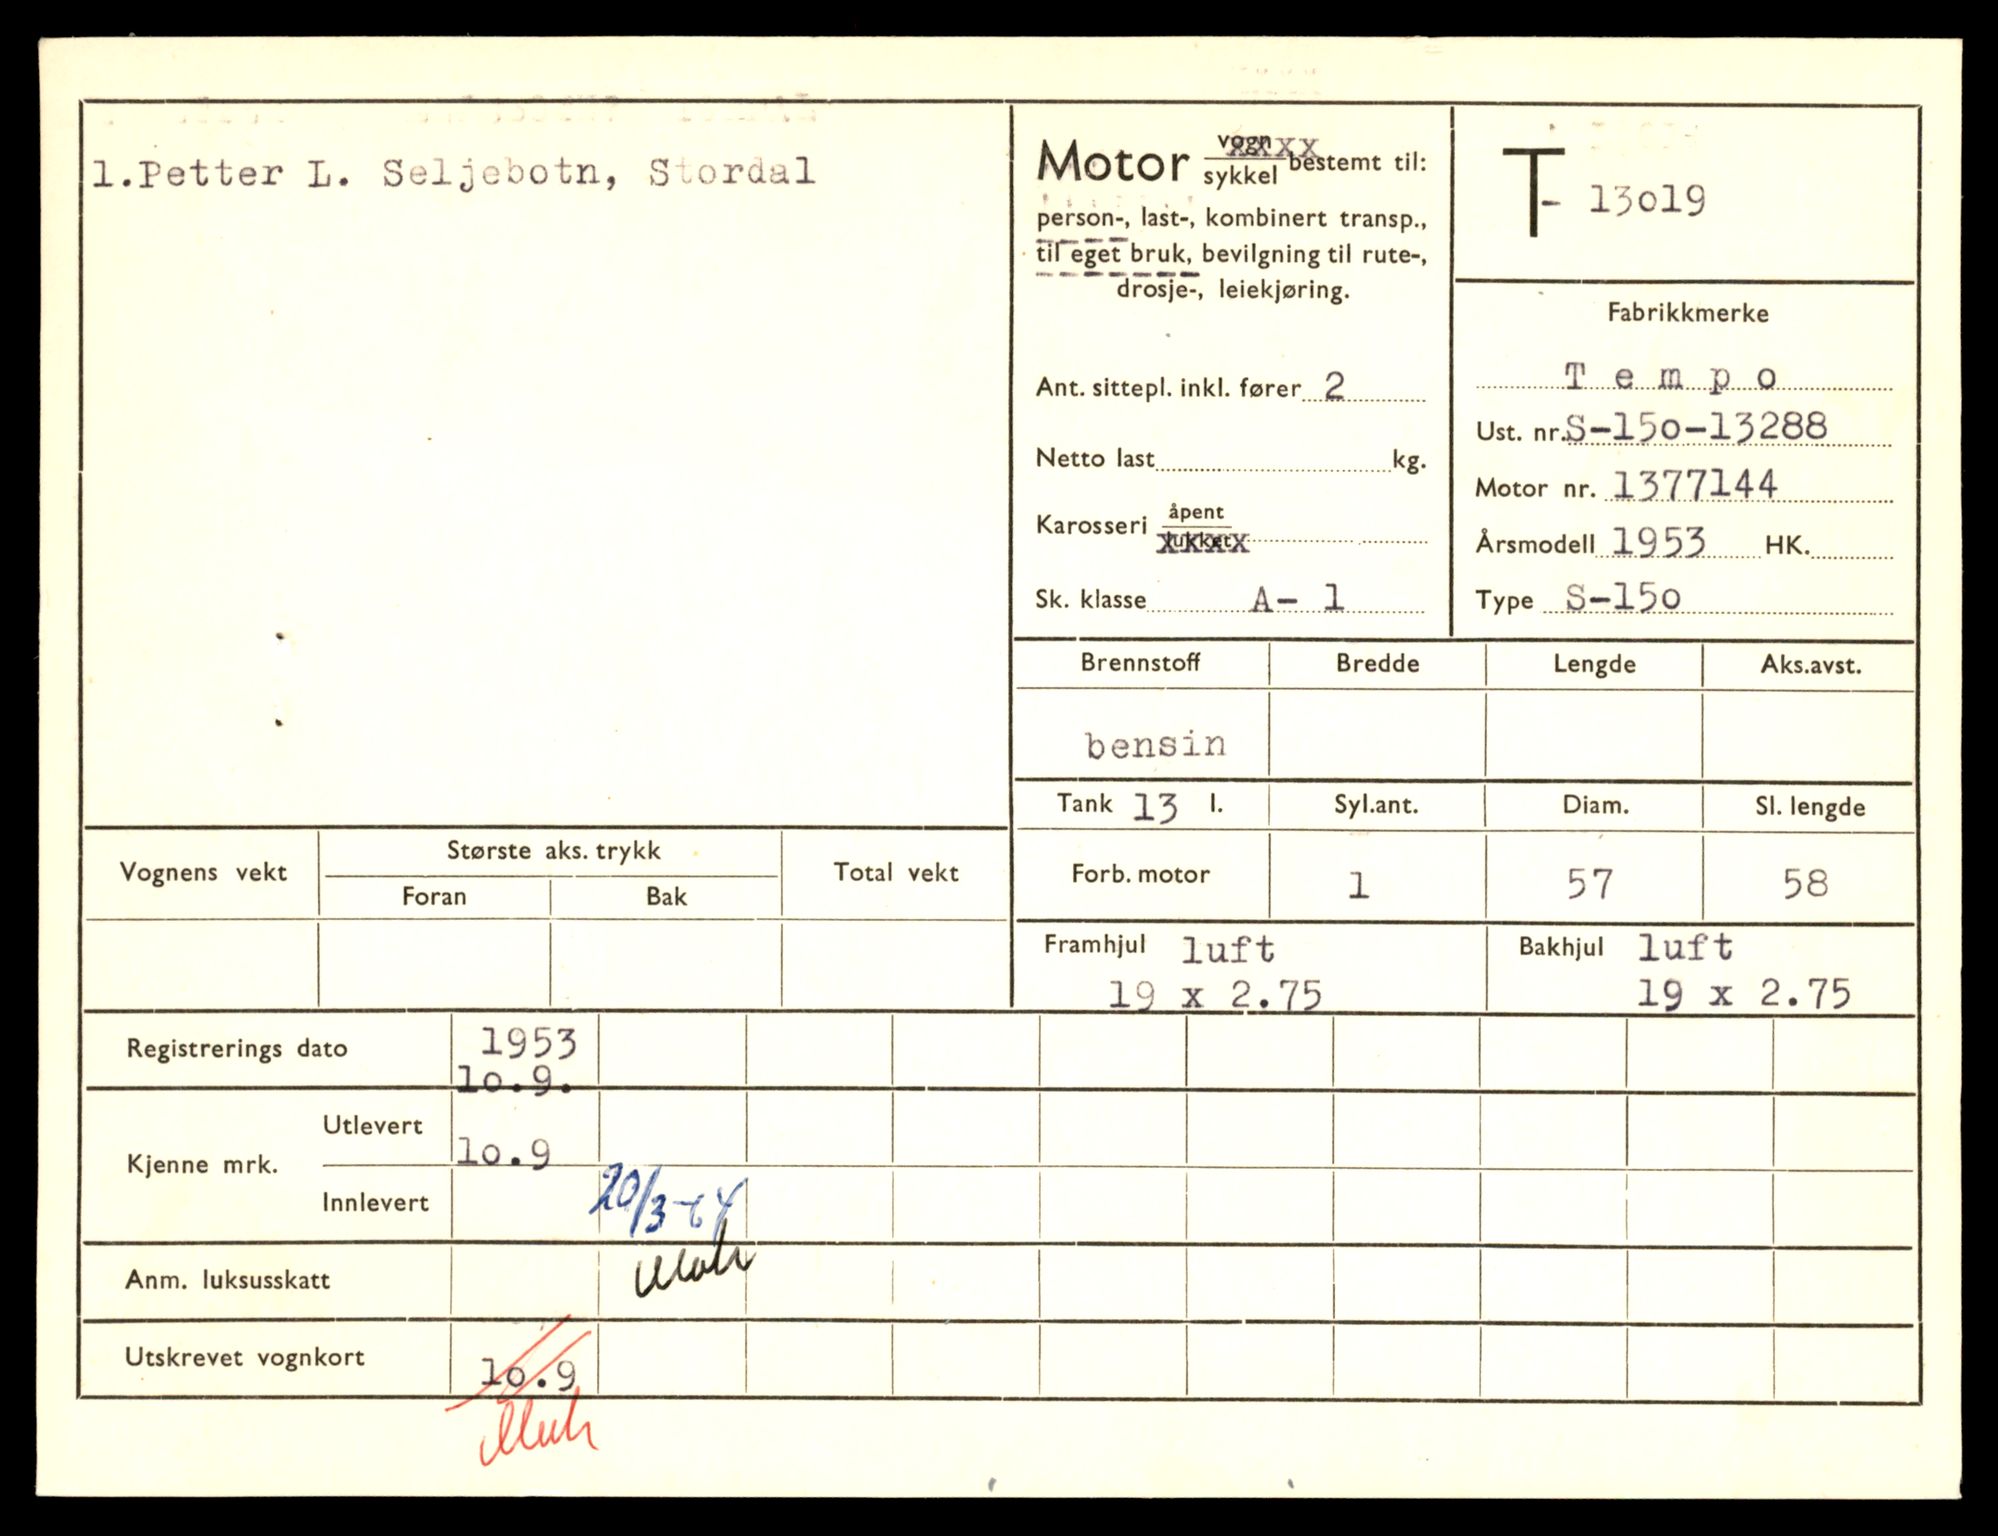 1.Petter L. Seljebotn, Stordal
Motor vogn
sykkel bestemt til:
person-, last-, kombinert transp.,
til eget bruk, bevilgning til rute-,
drosje-, leiekjøring.
Ant. sittepl. inkl. fører 2
Netto last kg.
Karosseri åpent
lukket
Sk. klasse A- 1
T- 13o19
Fabrikkmerke
T e m p o
Ust. nr. S-15o-13288
Motor nr. 1377144
Årsmodell 1953 HK.
Type S-15o
Brennstoff Bredde Lengde Aks.avst.
bensin
Tank 13 l. Syl.ant. Diam. Sl. lengde
Forb. motor 1 57 58
Framhjul luft
19 x 2.75
Bakhjul luft
19 x 2.75
Vognens vekt Største aks. trykk Total vekt
Foran Bak
Registrerings dato 1953
1o.9.
Kjenne mrk. Utlevert 1o.9
Innlevert 20/3-64
Anm. luksusskatt
Utskrevet vognkort 1o.9